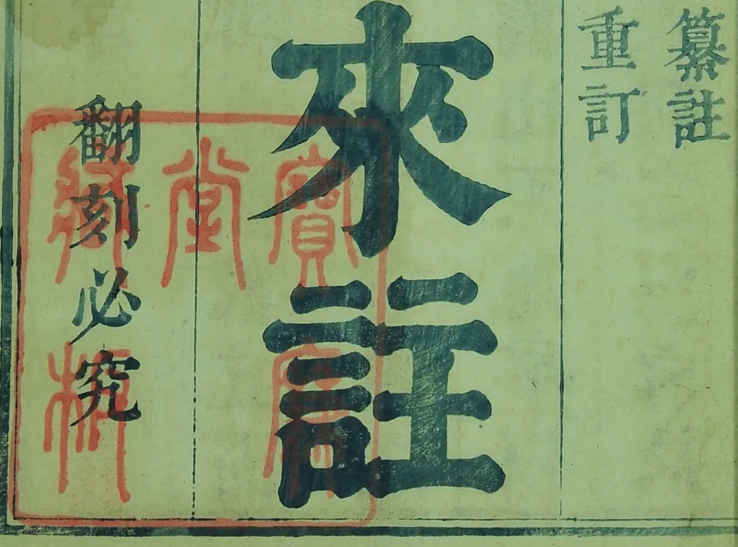 纂註
重訂
來註
翻刻必究
寶
堂